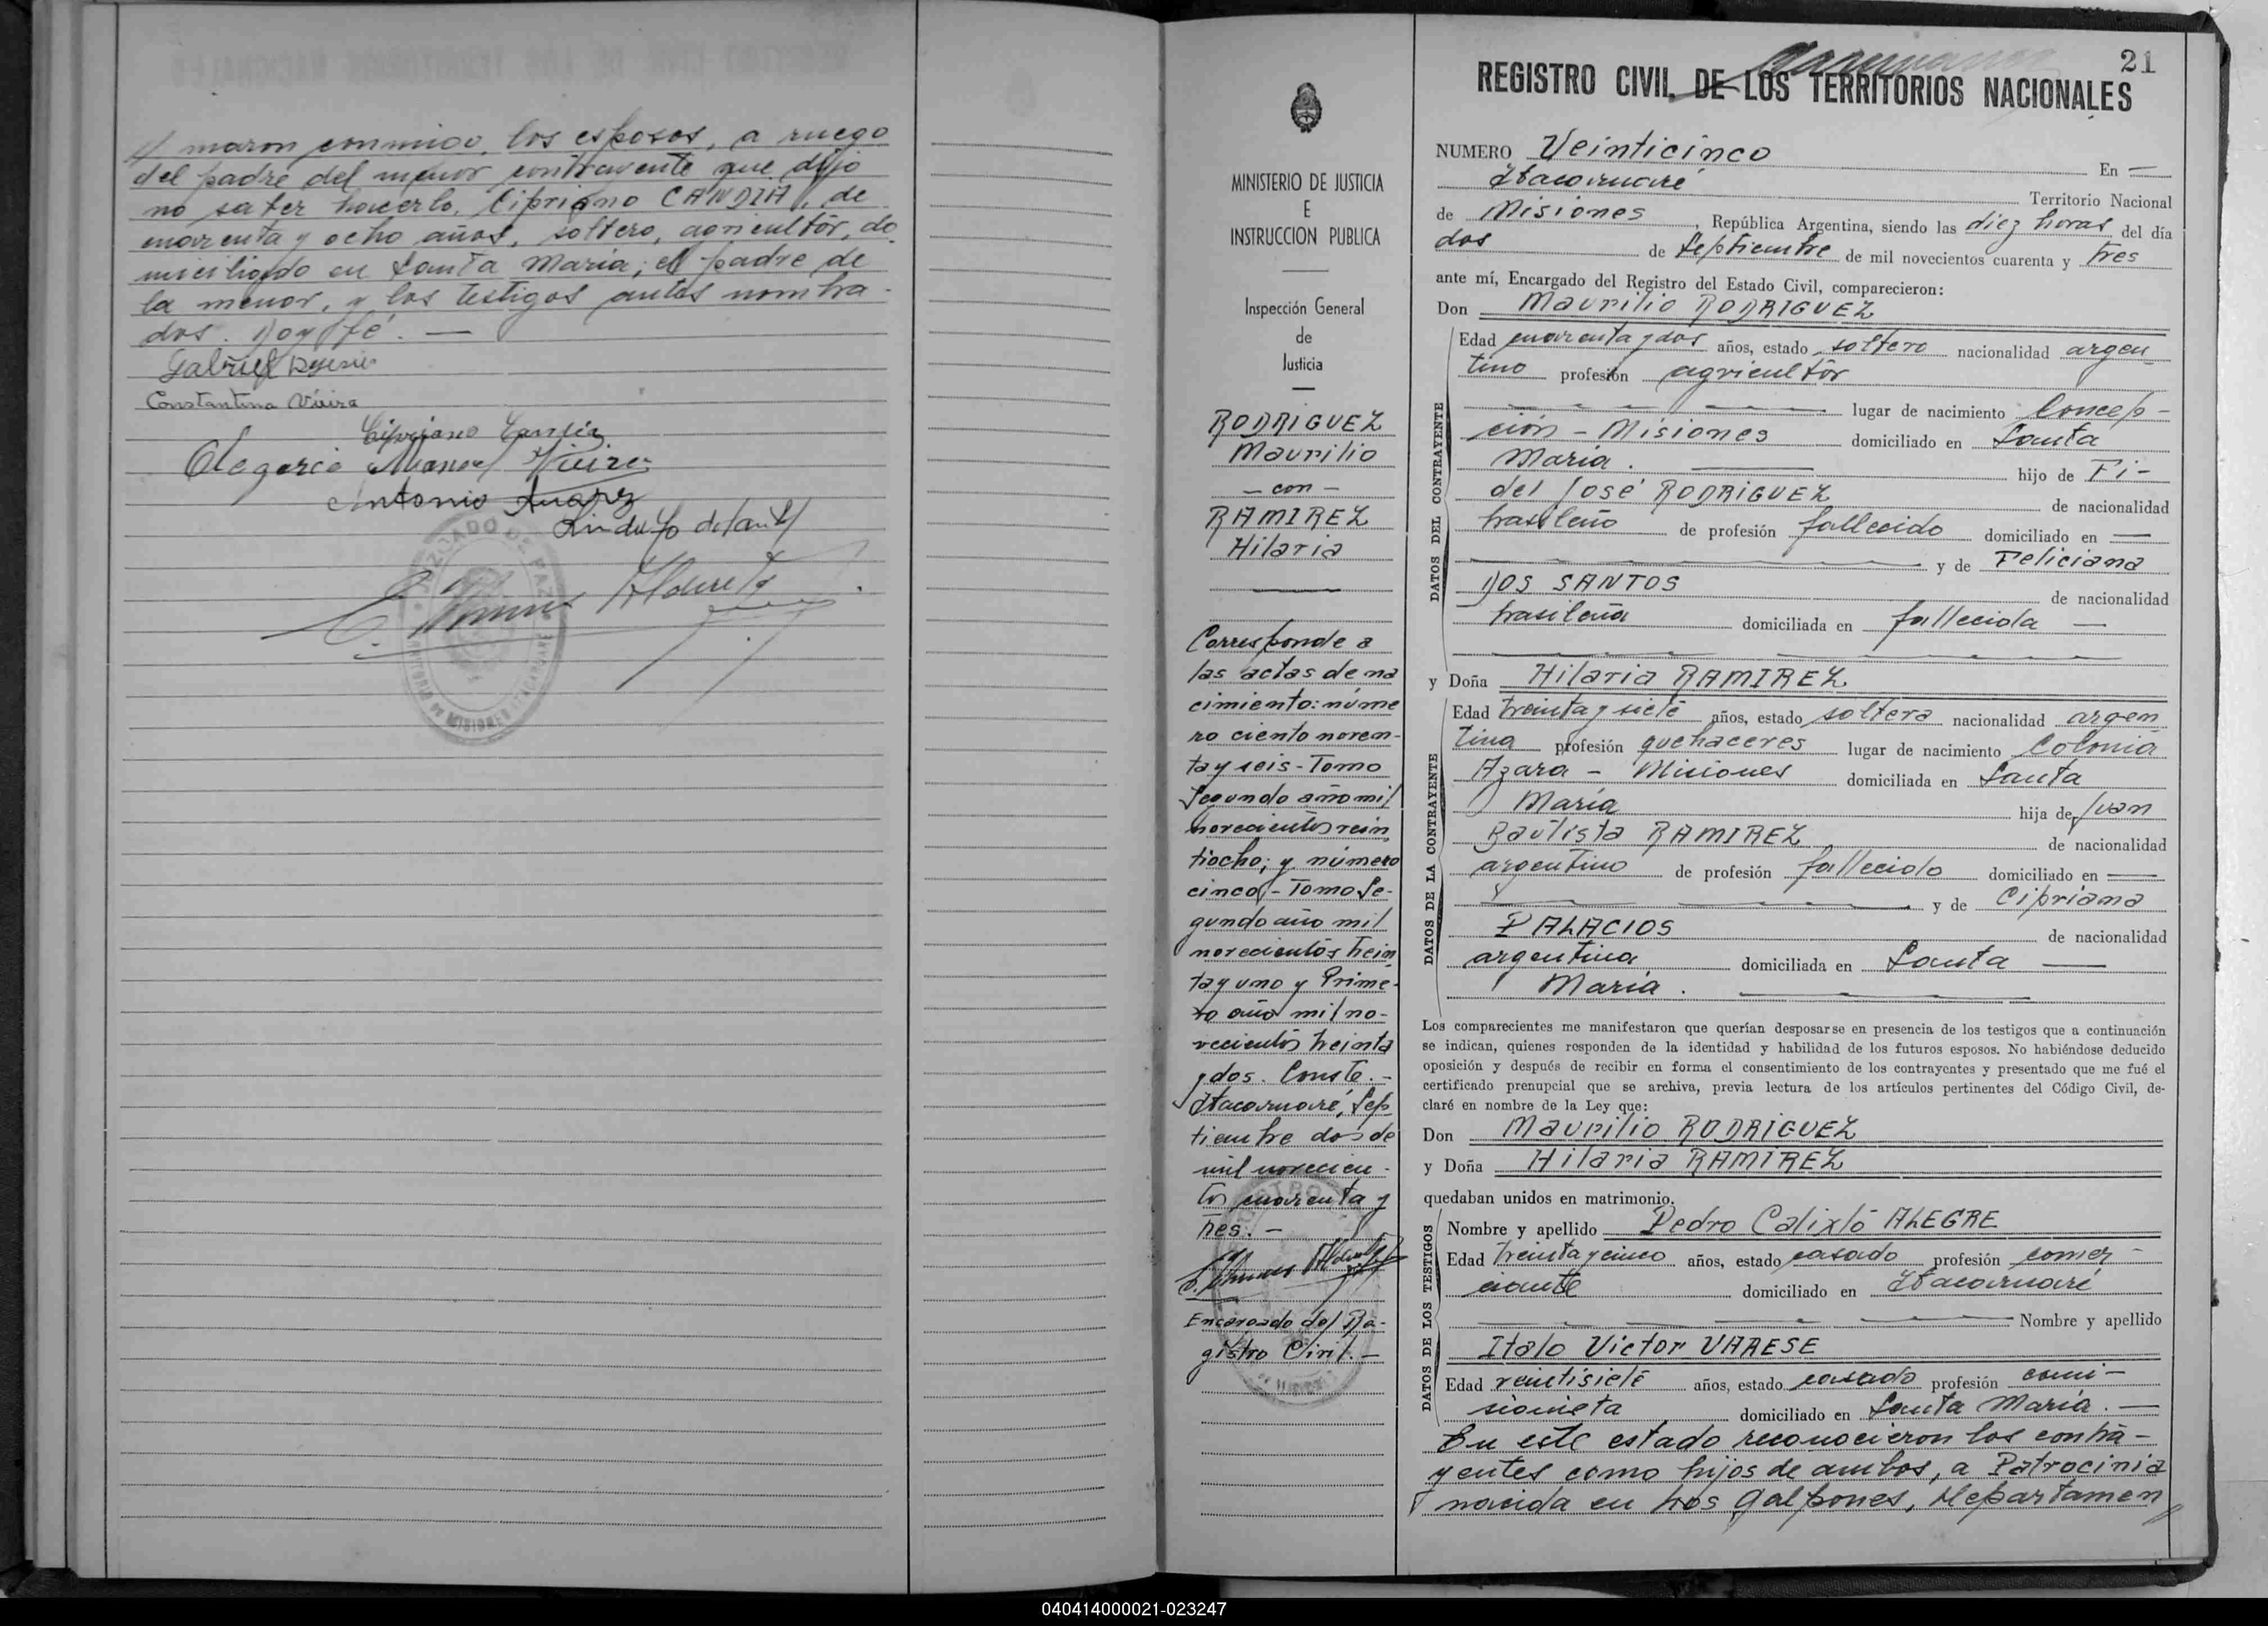 // maron conmigo, los esposos, a ruego
del padre del menor contrayente que dijo
no saber hacerlo, Cipriano CANDIA, de
cuarenta y ocho años, soltero, agricultor, do
miciliado en Santa Maria; el padre de
la menor, y los testigos antes nombra-
dos. Doy fé. —
Gabriel
Constantina Vieira
Cipriano Candia
Olegario Manoel Vieira
Antonio Suarez
Lindulfo
JUZGADO DE PAZ
21
REGISTRO CIVIL DE LOS TERRITORIOS NACIONALES
MINISTERIO DE JUSTICIA
E
INSTRUCCION PUBLICA
Inspección General
de
Justicia
RODRIGUEZ
Maurilio
— con —
RAMIREZ
Hilaria
Corresponde a
las actas de na
cimiento: núme
ro ciento noven-
ta y seis - Tomo
Segundo año mil
novecientos vein
tiocho; y número
cinco, - Tomo Se-
gundo año mil
novecientos trein
ta y uno y Prime-
ro año mil no-
vecientos treinta
y dos. Conste. -
Itacaruaré, Sep
tiembre dos de
mil novecien-
tos cuarenta y
tres. -
Encargado del Re-
gistro Civil. -
NUMERO Veinticinco En —
Itacaruaré Territorio Nacional
de Misiones, República Argentina, siendo las diez horas del día
dos de Septiembre de mil novecientos cuarenta y tres
ante mí, Encargado del Registro del Estado Civil, comparecieron:
Don Maurilio RODRIGUEZ
DATOS DEL CONTRAYENTE
Edad cuarenta y dos años, estado soltero nacionalidad argen-
tino profesión agricultor
lugar de nacimiento Concep-
ción - Misiones domiciliado en Santa
Maria. hijo de Fi-
del José RODRIGUEZ de nacionalidad
brasileño de profesión fallecido domiciliado en —
y de Feliciana
DOS SANTOS de nacionalidad
brasileña domiciliada en fallecida —
y Doña Hilaria RAMIREZ
DATOS DE LA CONTRAYENTE
Edad treinta y siete años, estado soltera nacionalidad argen
tina profesión quehaceres lugar de nacimiento Colonia
Azara - Misiones domiciliada en Santa
María hija de Juan
Bautista RAMIREZ de nacionalidad
argentino de profesión fallecido domiciliado en —
y de Cipriana
PALACIOS de nacionalidad
argentina domiciliada en Santa —
María.
Los comparecientes me manifestaron que querían desposarse en presencia de los testigos que a continuación
se indican, quienes responden de la identidad y habilidad de los futuros esposos. No habiéndose deducido
oposición y después de recibir en forma el consentimiento de los contrayentes y presentado que me fué el
certificado prenupcial que se archiva, previa lectura de los artículos pertinentes del Código Civil, de-
claré en nombre de la Ley que:
Don Maurilio RODRIGUEZ
y Doña Hilaria RAMIREZ
quedaban unidos en matrimonio.
DATOS DE LOS TESTIGOS
Nombre y apellido Pedro Calixto ALEGRE
Edad treinta y cinco años, estado casado profesión comer-
ciante domiciliado en Itacaruaré
Nombre y apellido
Italo Victor VARESE
Edad veintisiete años, estado casado profesión comi-
sionista domiciliado en Santa María. —
En este estado reconocieron los contra-
yentes como hijos de ambos, a Patrocinia
nacida en Tres Galpones, Departamen //
040414000021-023247